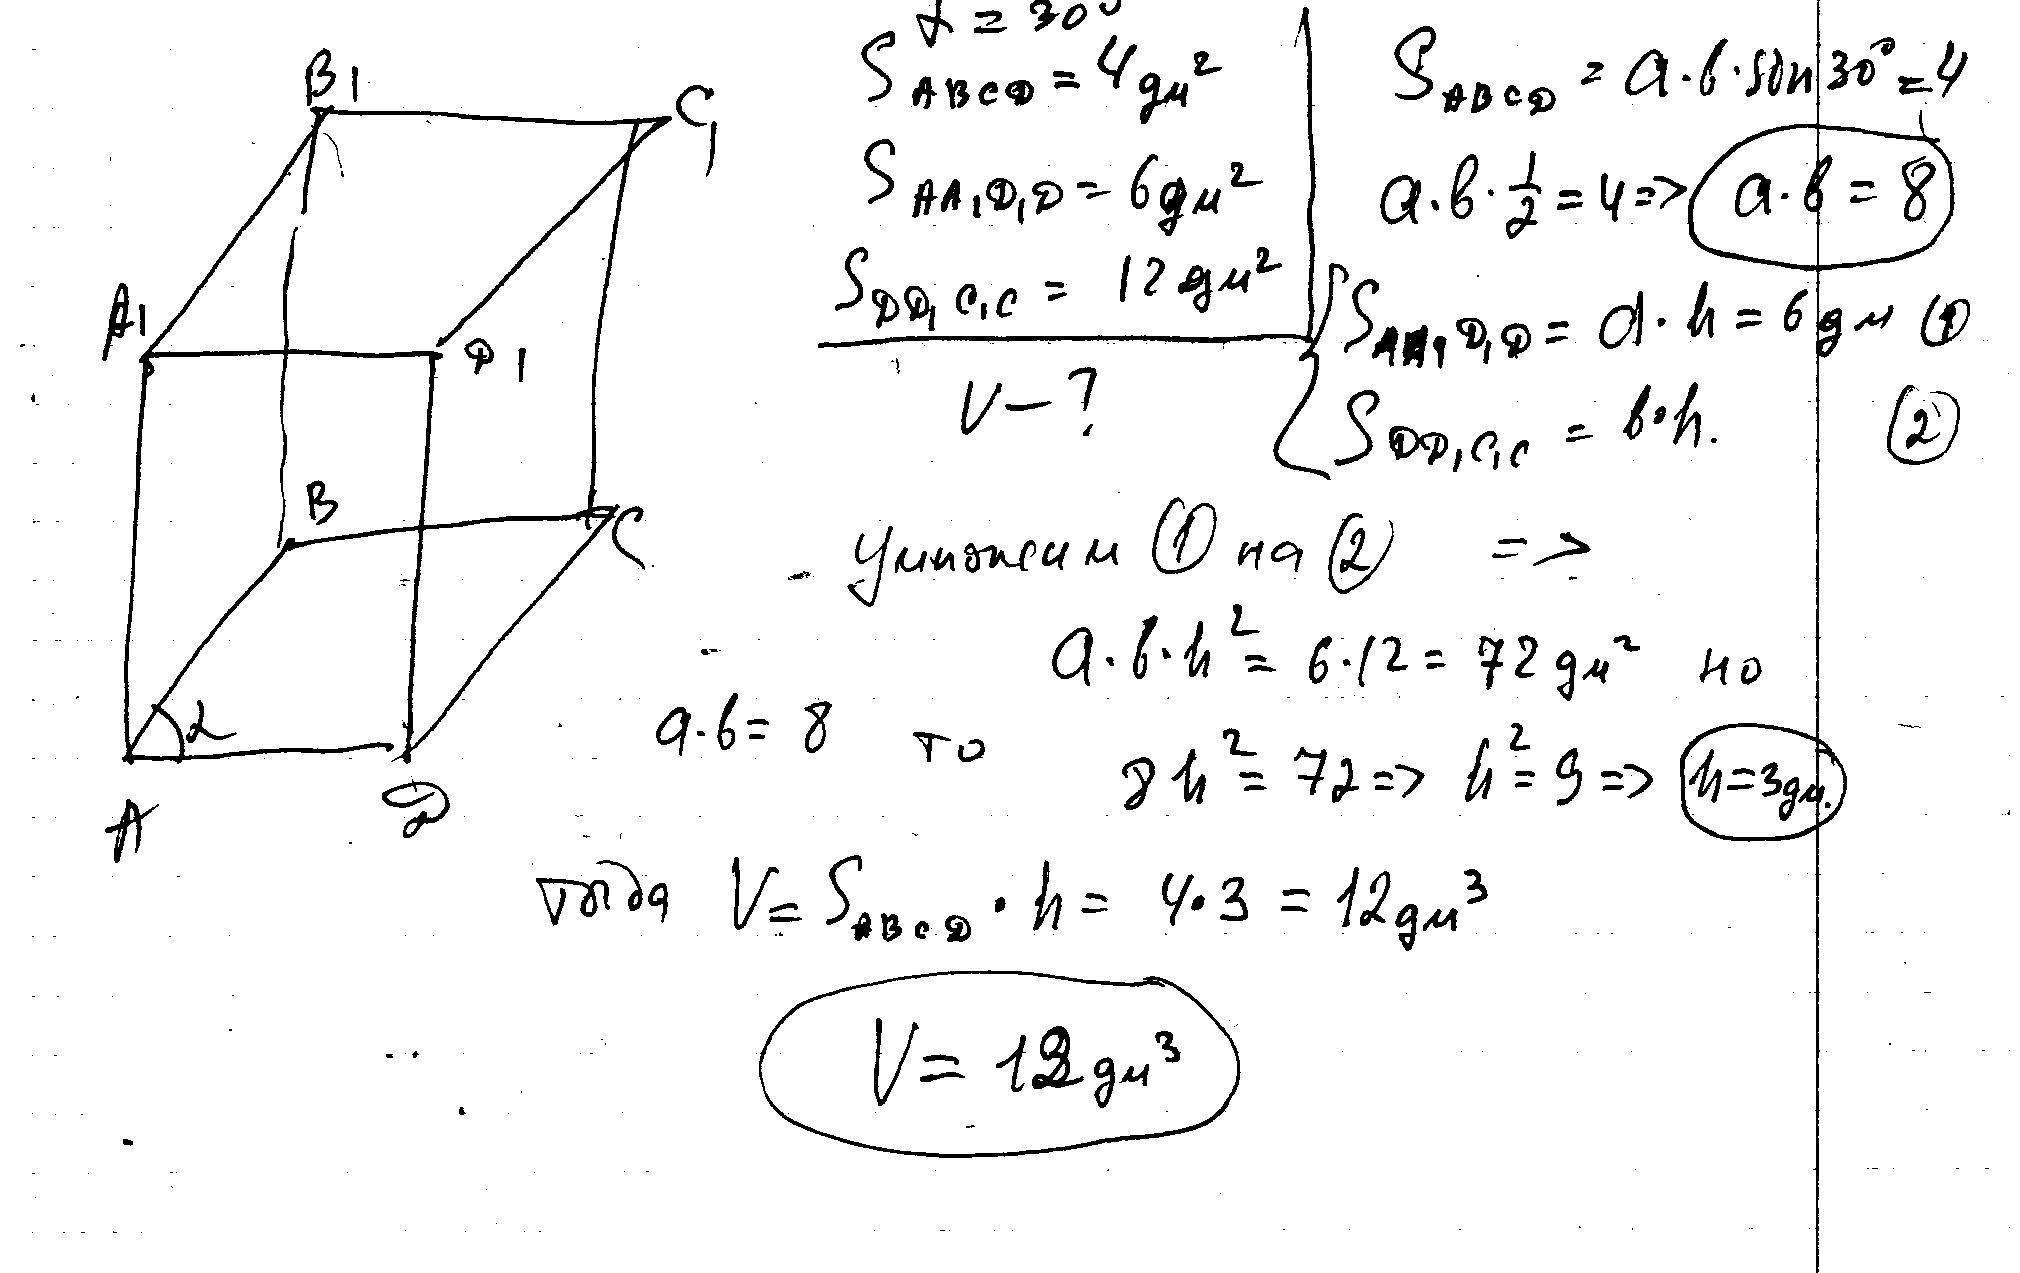 α = 30°
S ABCD = 4 дм²
S AA₁D₁D = 6 дм²
S DD₁C₁C = 12 дм²
V – ?
S ABCD = a·b·sin 30° = 4
a·b·1/2 = 4 => a·b = 8
S AA₁D₁D = a·h = 6 дм ①
S DD₁C₁C = b·h. ②
Умножим ① на ② =>
a·b·h² = 6·12 = 72 дм² но
a·b = 8 то 8h² = 72 => h² = 9 => h = 3 дм.
тогда V = S ABCD · h = 4·3 = 12 дм³
V = 12 дм³
B₁
C₁
A₁
D₁
B
C
α
A
D